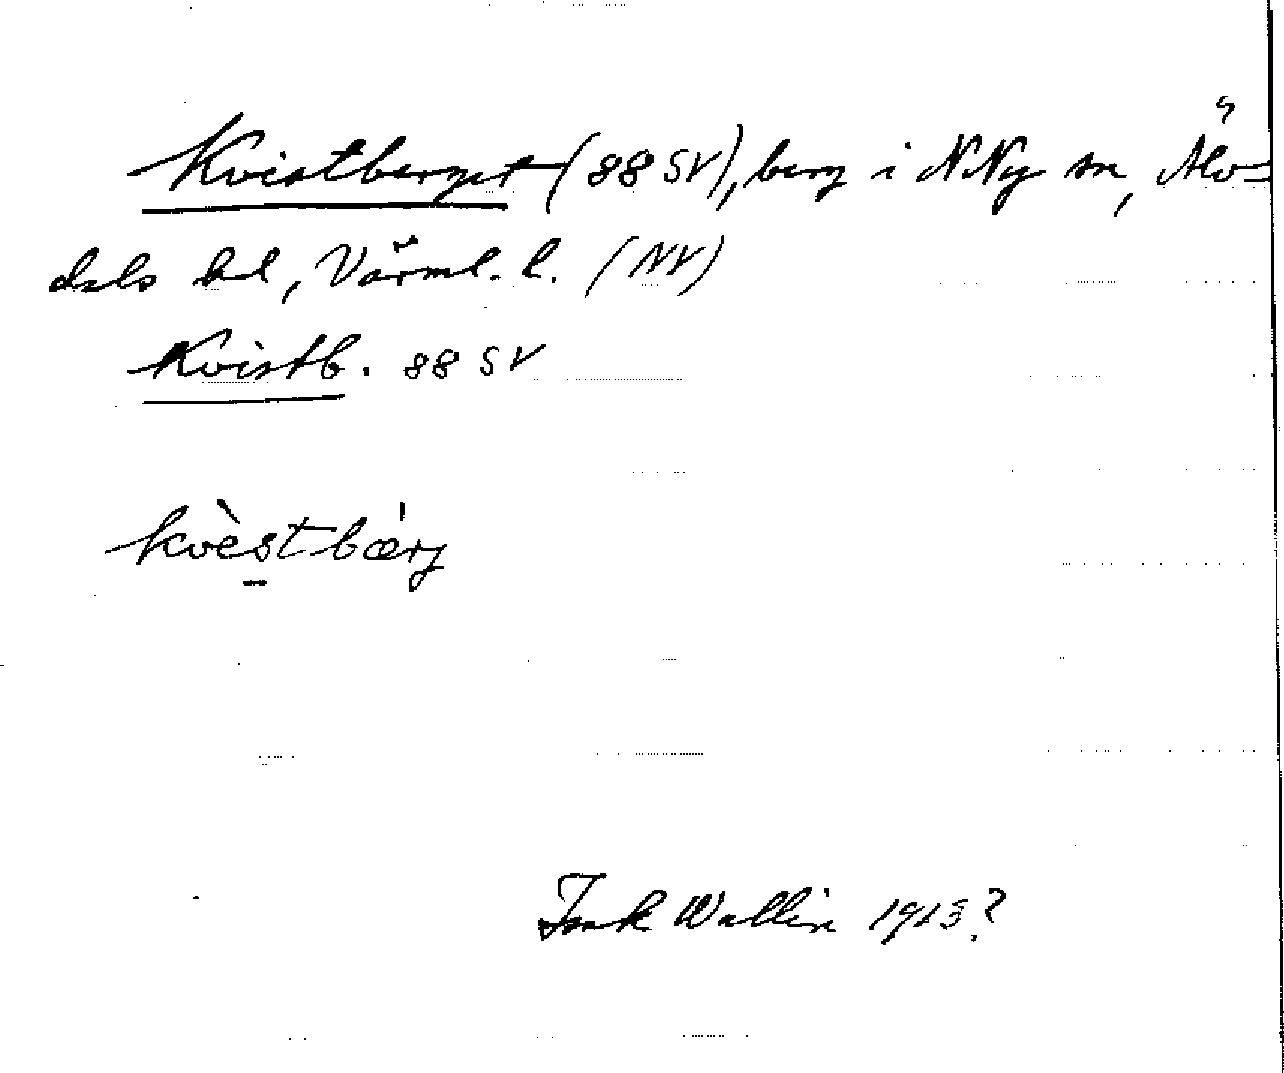 Kvistberget (88 SV), berg i N Ny sn, Älv-
dals hd, Värml. l. (NV)
Kvistb. 88 SV
kvèstbær̍j
Isak Wallin 1913?